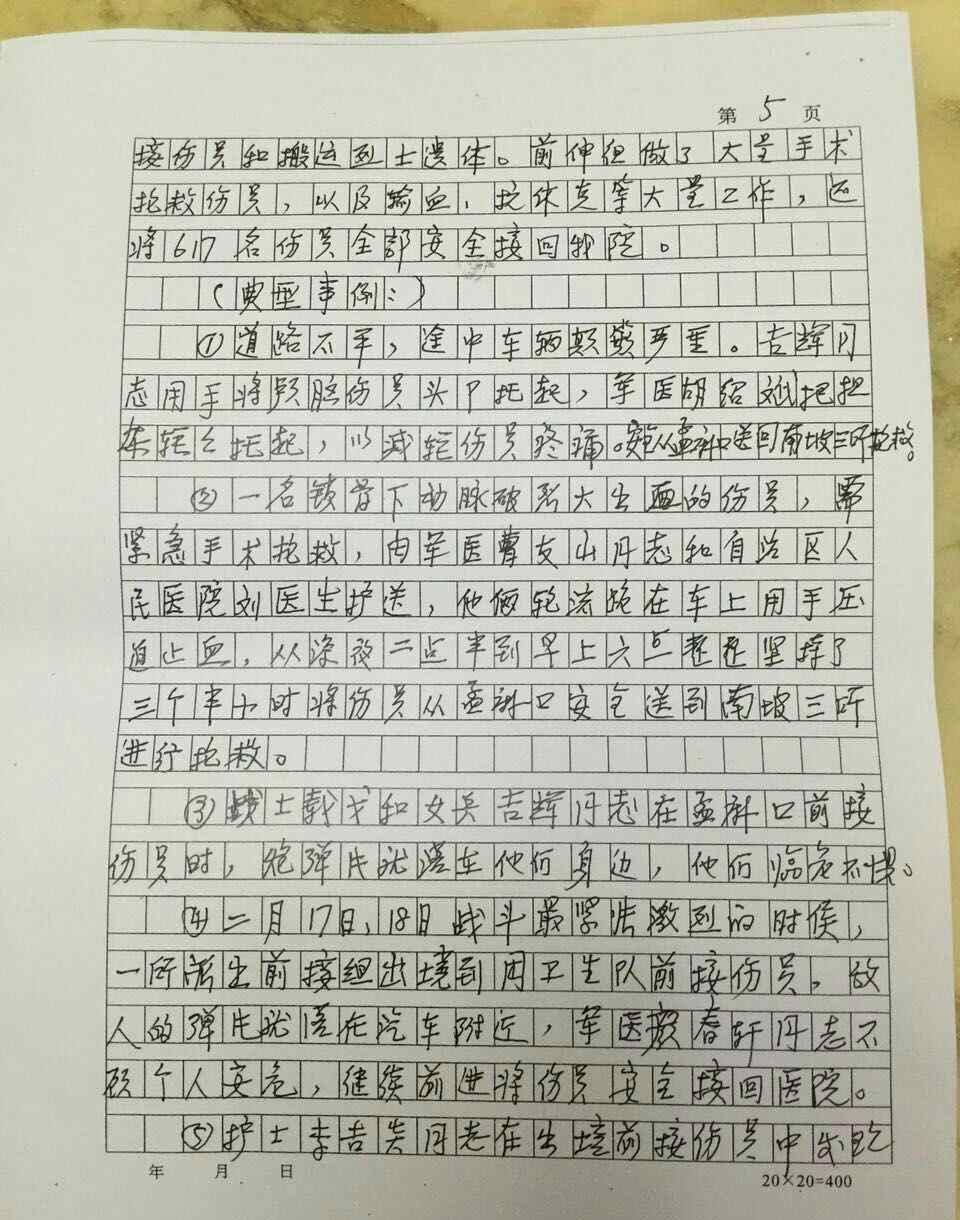 第 5 页
接伤员和搬运烈士遗体。前伸组做了大量手术
抢救伤员，以及输血、抗休克等大量工作，还
将617名伤员全部安全接回我院。
（典型事例：）
①道路不平，途中车辆颠簸严重。吉辉同
志用手将颅脑伤员头部托起，军医胡绍斌把担
架轻轻托起，以减轻伤员疼痛。安全从孟科口送回南坡三所抢救。
②一名锁骨下动脉破裂大出血的伤员，需
紧急手术抢救，由军医曹友山同志和自治区人
民医院刘医生护送，他俩轮流跪在车上用手压
迫止血，从深夜二点半到早上六点整整坚持了
三个半小时将伤员从孟科口安全送到南坡三所
进行抢救。
③战士戴戈和女兵吉辉同志在孟科口前接
伤员时，炮弹片就落在他们身边，他们临危不惧。
④二月17日、18日战斗最紧张激烈的时侯，
一所派出前接组出境到团卫生队前接伤员，敌
人的弹片就落在汽车附近，军医蔡春轩同志不
顾个人安危，继续前进将伤员安全接回医院。
⑤护士李吉英同志在出境前接伤员中发现
年 月 日
20×20=400